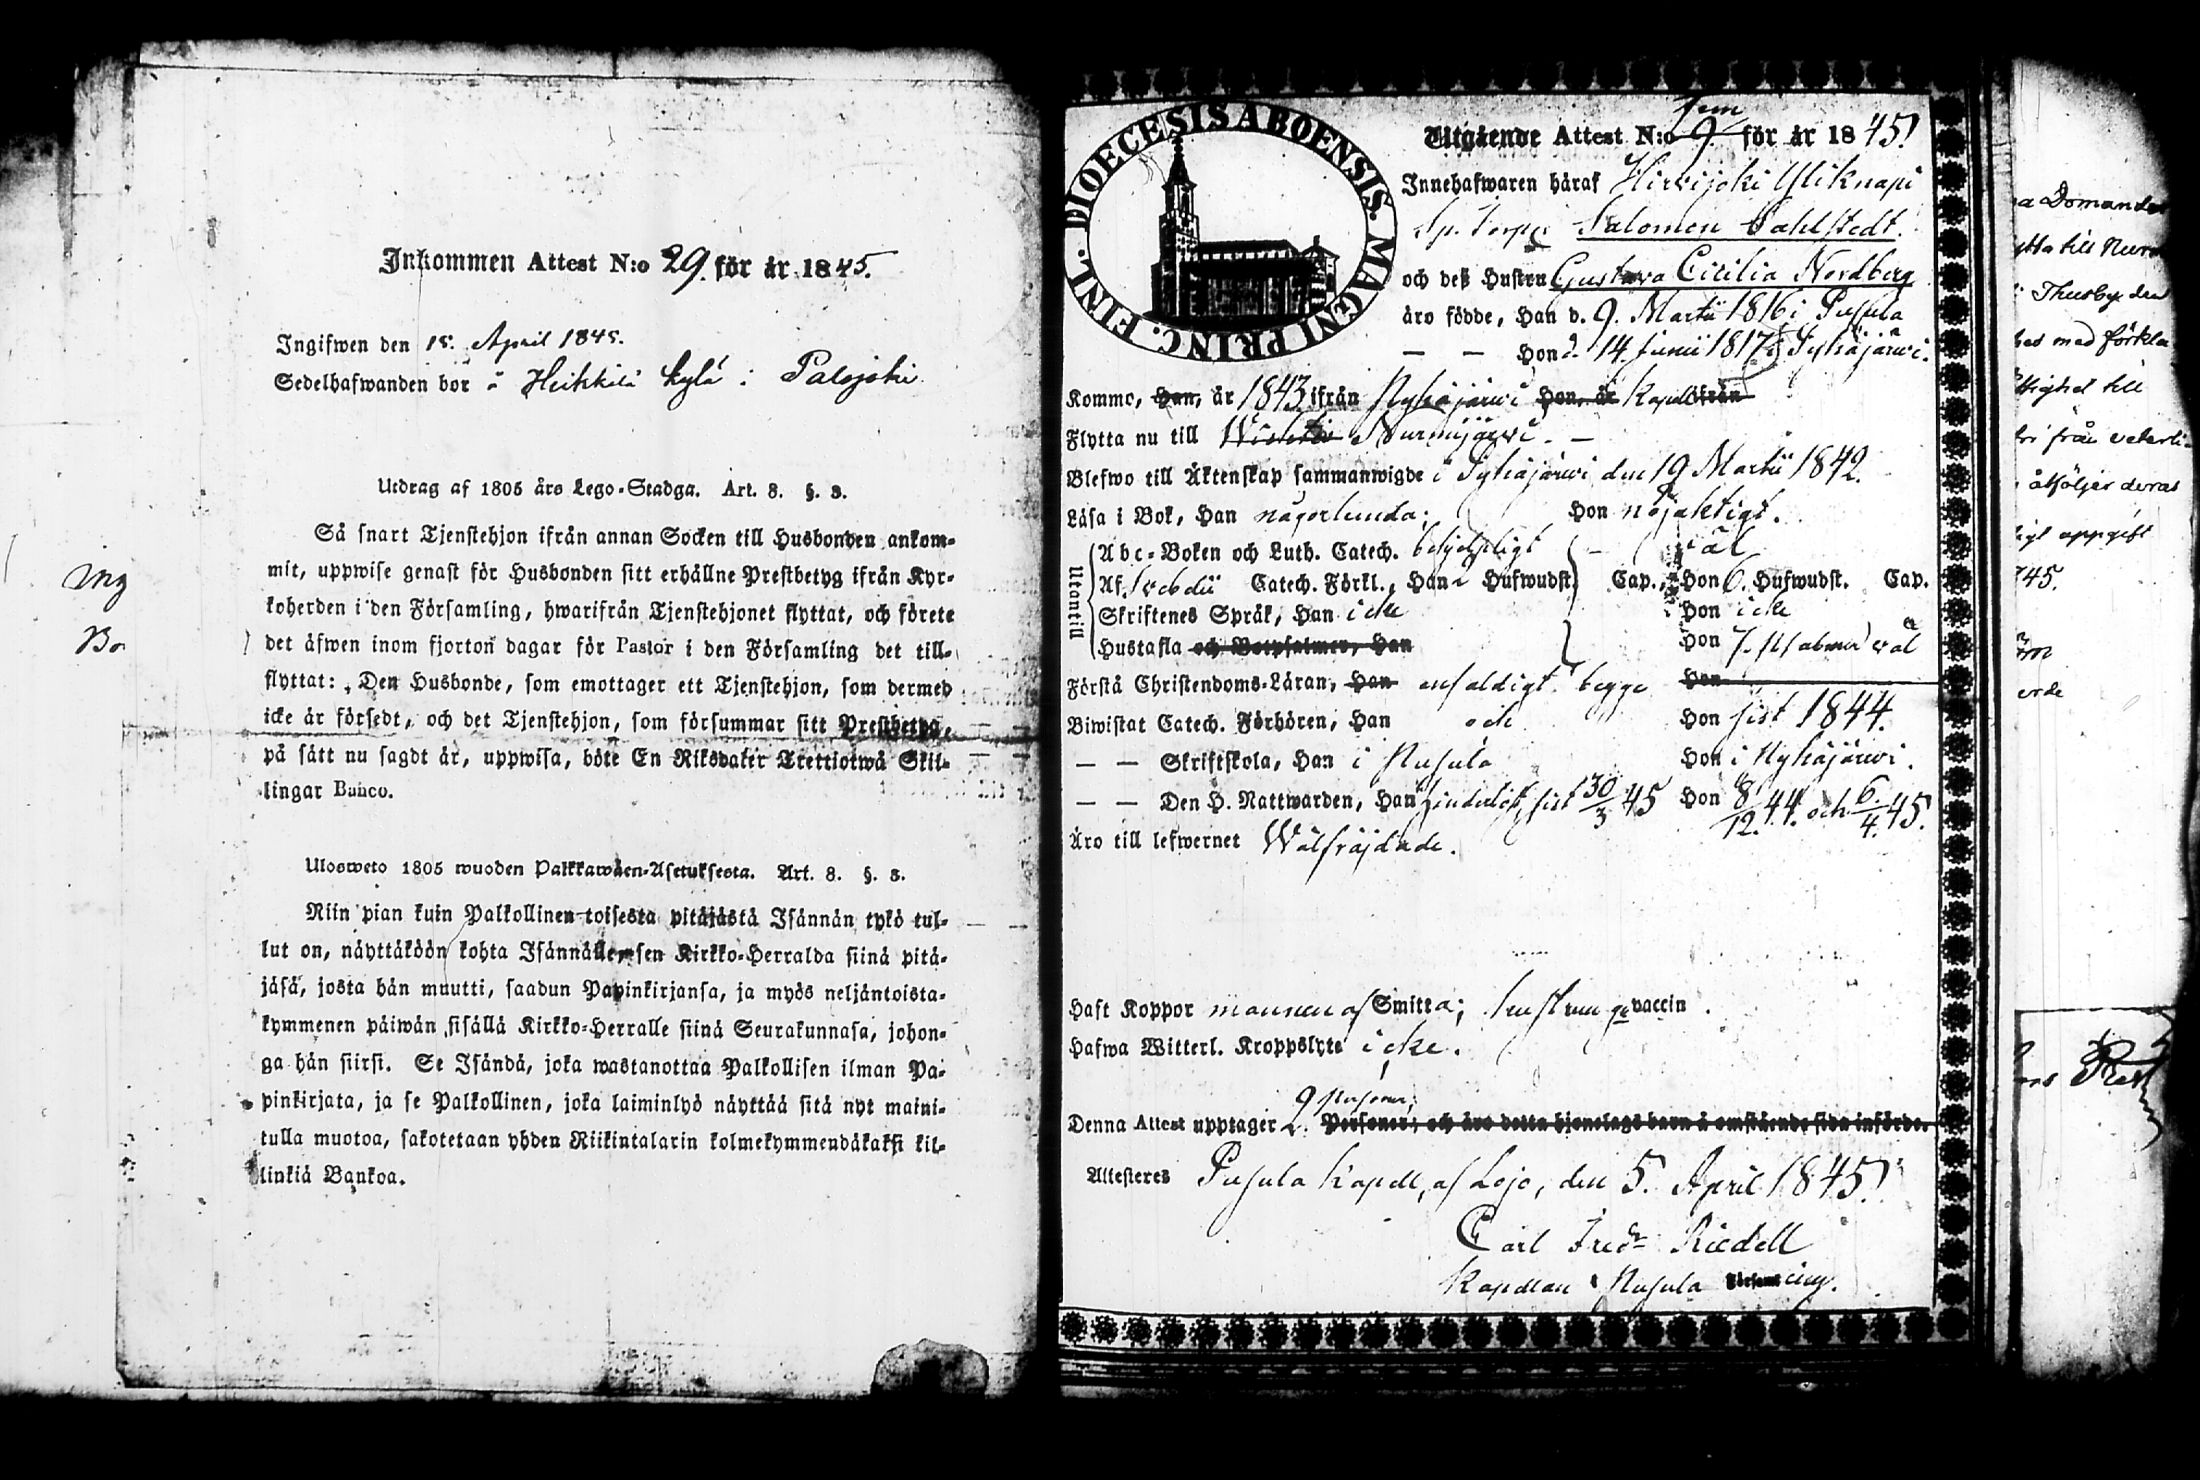 Inkommen Attest N:o 29. för år 1845.
Ingifwen den 15. April 1845.
Sedelhafwanden bor å Heikkilä kylä i Palojoki
Utdrag af 1805 års Lego-Stadga. Art. 8. §. 3.
Så snart Tjenstehjon ifrån annan Socken till Husbonden ankom-
mit, uppwise genast för Husbonden sitt erhållne Prestbetyg ifrån Kyr-
koherden i den Församling, hwarifrån Tjenstehjonet flyttat, och förete
det äfwen inom fjorton dagar för Pastor i den Församling det till-
flyttat: Den Husbonde, som emottager ett Tjenstehjon, som dermed
icke är försedt, och det Tjenstehjon, som försummar sitt Prestbetyg,
på sätt nu sagdt är, uppwisa, böte En Riksdaler Trettiotwå Skil-
lingar Banco.
Ulosweto 1805 wuoden Palkkawäen-Asetuksesta. Art. 8. §. 3.
Niin pian kuin Palkollinen toisesta pitäjästä Isännän tykö tul-
lut on, näyttäköön kohta Isännällensen Kirkko-Herralda siinä pitä-
jäsä, josta hän muutti, saadun Papinkirjansa, ja myös neljäntoista-
kymmenen päiwän sisällä Kirkko-Herralle siinä Seurakunnasa, johon-
ga hän siirsi. Se Isändä, joka wastanottaa Palkollisen ilman Pa-
pinkirjata, ja se Palkollinen, joka laiminlyö näyttää sitä nyt maini-
tulla muotoa, sakotetaan yhden Riikintalarin kolmekymmendäkaksi kil-
linkiä Bankoa.
Ing
Bo
DIOECESIS ABOENSIS. MAGNI PRINC. FINL.
fem
Utgående Attest N:o 9. för år 1845.
Innehafwaren häraf Hirvijoki Yliknapi
Sp. Torpr Salomon Dahlstedt.
och deß Hustru Gustava Cicilia Nordberg
äro födde, Han d. 9. Martii 1816 i Pusula
— — Hon d. 14. Junii 1817 i Pyhäjärwi.
Kommo, Han, år 1843 ifrån Pyhäjärwi Hon, år Kapell ifrån
Flytta nu till Nurmijärwi. —
Blefwo till Äktenskap sammanwigde i Pyhäjärwi den 19 Martii 1842.
Läsa i Bok, Han någorlunda; Hon nöjaktigt.
Utontill
Abc-Boken och Luth. Catech. behjelpligt – väl
Af Svebelii Catech. Förkl., Han 2 Hufwudst. Cap., Hon 6. Hufwudst. Cap.
Skriftenes Språk, Han icke Hon icke
Hustafla och Botpsalmer, Han Hon 7. psalmer väl
Förstå Christendoms-Läran, Han enfaldigt begge Hon
Biwistat Catech. Förhören, Han och Hon sist 1844.
— — Skriftskola, Han i Pusula Hon i Pyhäjärwi.
— — Den H. Nattwarden, Han sist 30/3 45 Hon 8/12 44. och 6./4. 45.
Äro till lefwernet Wälfräjdade.
Haft Koppor mannen af Smitta; hustrun gevaccin.
Hafwa Witterl. Kroppslyte icke.
2 Personer,
Denna Attest upptager 2. Personer; och äro detta hjonelags barn å omstående sida införde.
Attesteres Pusula Kapell, af Lojo, den 5. April 1845.
Carl Fredr Riedell
Kapellan i Pusula Församling.
a Domander
ytta till Nurm
i Thusby den
med förkla
från veterli
åtföljer deras
uppgift
745.